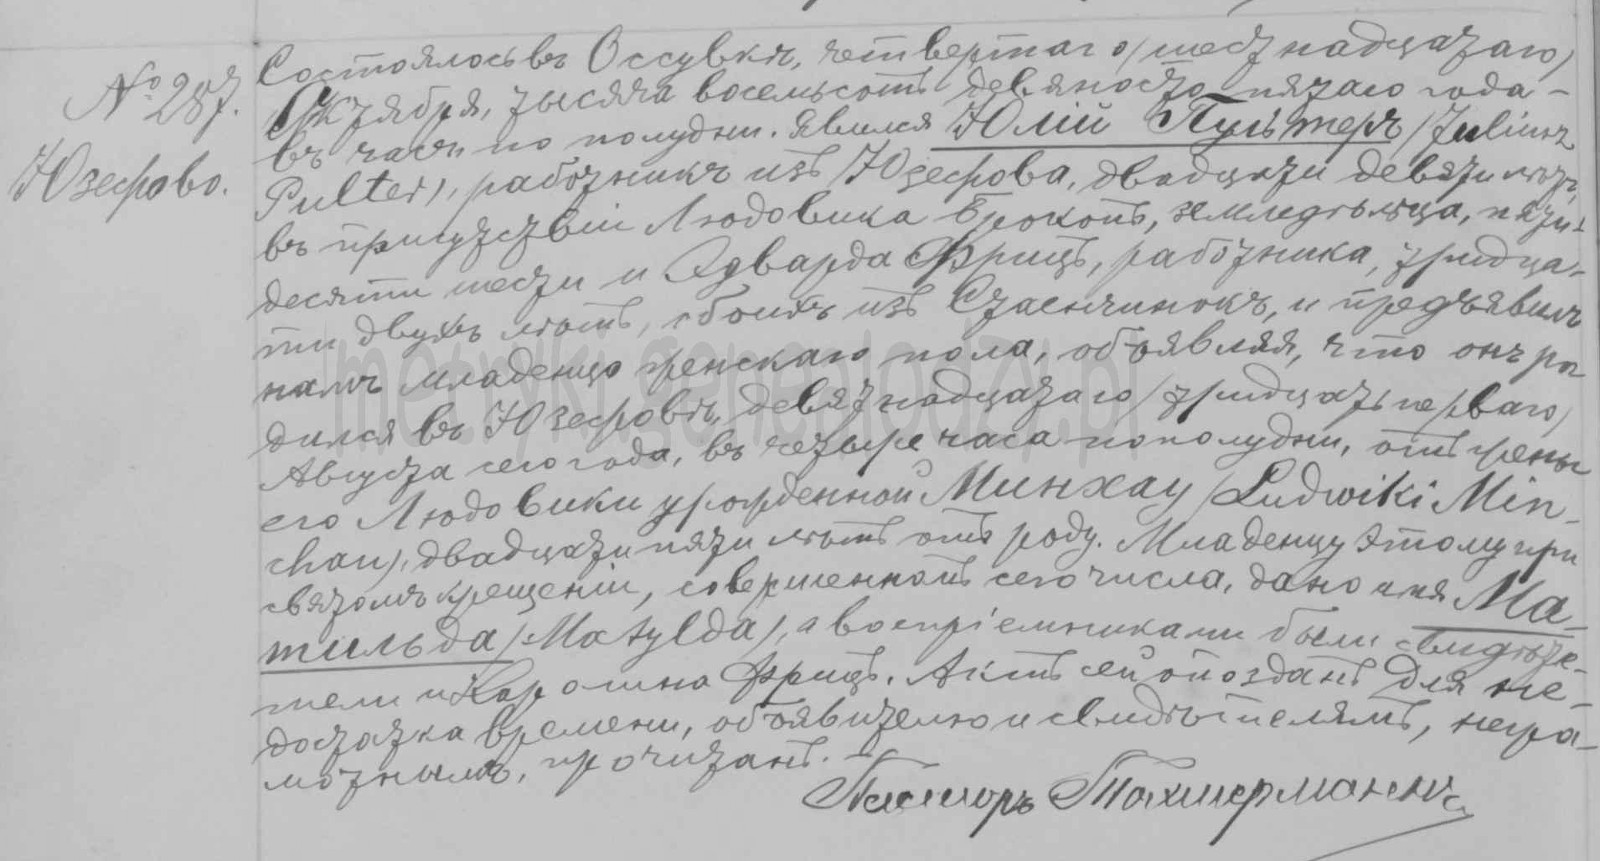 № 287.
Юзефово.
Состоялось въ Оссувкѣ, четвертаго (шестнадцатаго)
Октября, тысяча восемьсотъ девяносто пятаго года –
въ часъ по полудни. Явился Юлій Пультеръ (Juliusz
Pulter), работникъ изъ Юзефова, двадцати девяти лѣтъ,
въ присутствіи Людовика Брокопъ, земледѣльца, пяти-
десяти шести и Эдварда Фрицъ, работника, тридца-
ти двухъ лѣтъ, обоихъ изъ, и предъявилъ
намъ младенца женскаго пола, объявляя, что онъ ро
дился въ Юзефовѣ, девятнадцатаго (тридцать перваго)
Августа сего года, въ четыре часа пополудни, отъ жены
его Людовики урожденной Минхау (Ludwiki Min-
chau), двадцати пяти лѣтъ отъ роду. Младенцу этому при
святомъ крещеніи, совершенномъ сего числа, дано имя Ма-
тильда (Matylda), а воспріемниками были свидѣте-
тели и Каролина Фрицъ. Актъ сей опозданъ для не-
достатка времени, объявителю и свидѣтелямъ, негра-
мотнымъ, прочитанъ. –
Пасторъ
metryki.genealodzy.pl